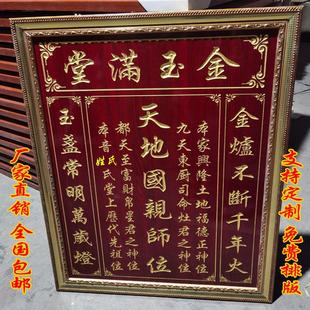 金玉滿堂
金爐不斷千年火
本家興隆土地福德正神位
九天東厨司命灶君之神位
天地國親師位
都天至富財帛星君之神位
本音姓氏氏堂上歷代先祖位
玉盞常明萬歲燈
支持定制 免费排版
厂家直销 全国包邮